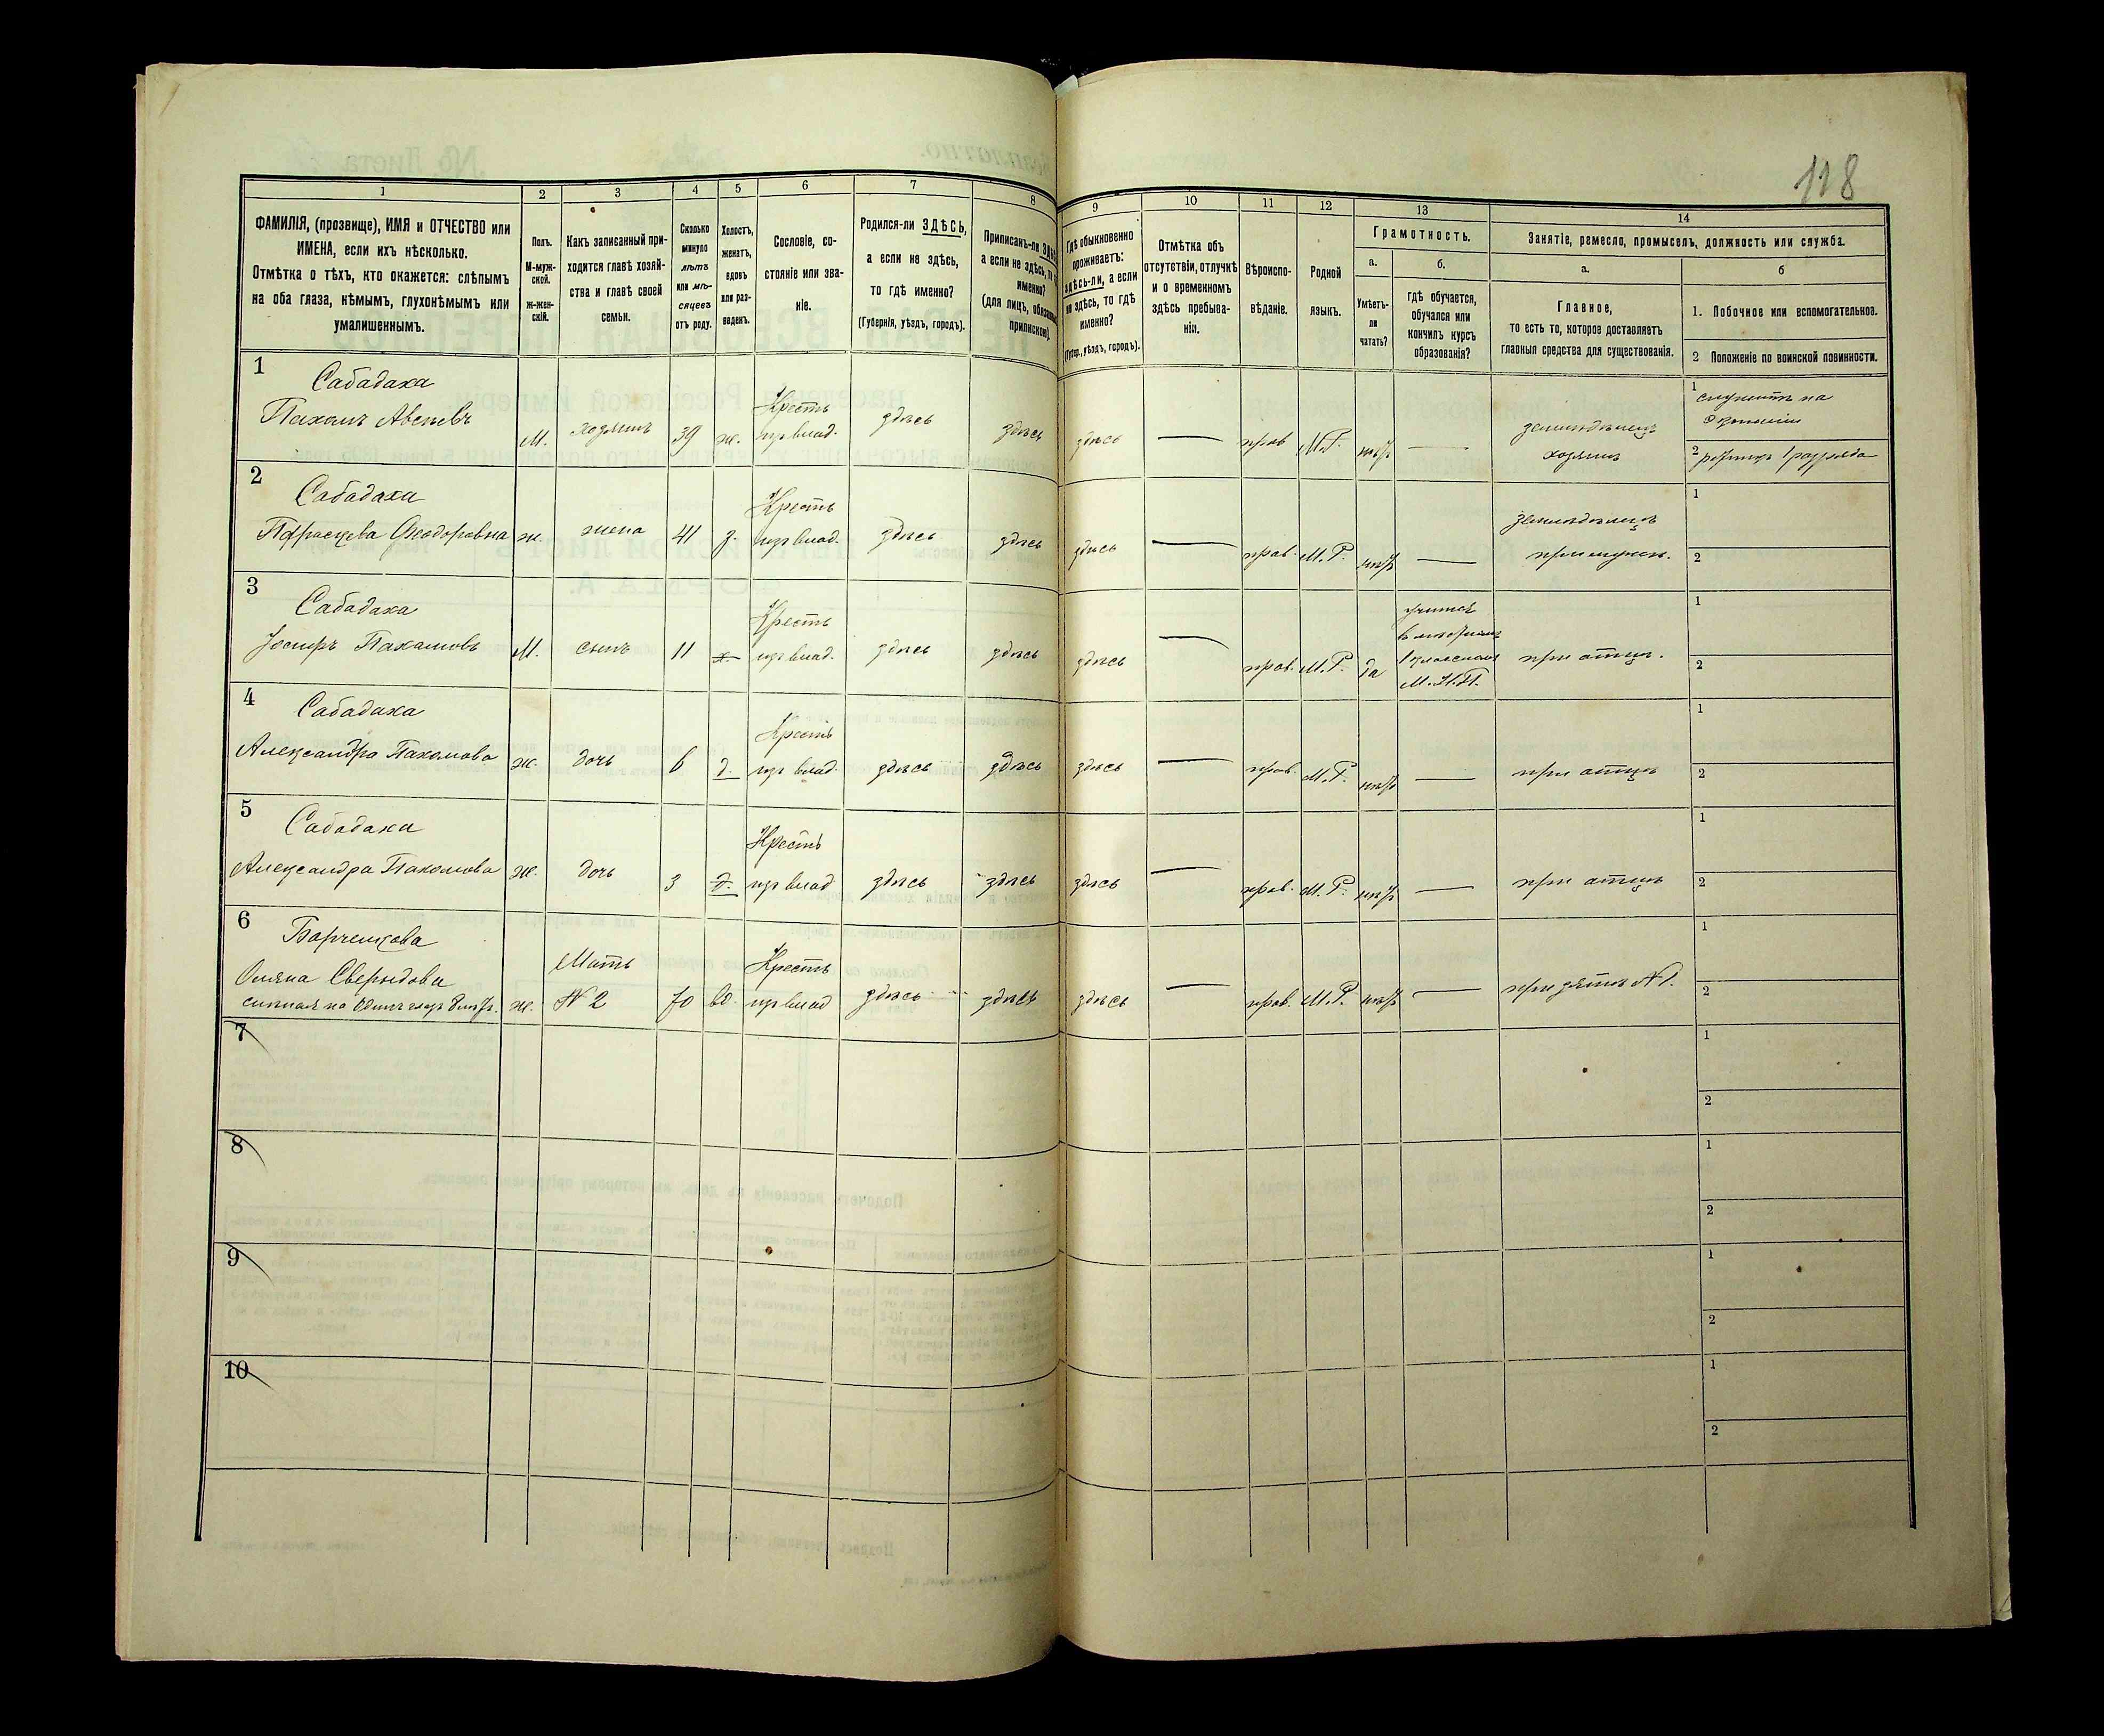 118
1 2 3 4 5 6 7 8 9 10 11 12 13 14
ФАМИЛІЯ, (прозвище), ИМЯ и ОТЧЕСТВО или
ИМЕНА, если ихъ нѣсколько.
Отмѣтка о тѣхъ, кто окажется: слѣпымъ
на оба глаза, нѣмымъ, глухонѣмымъ или
умалишеннымъ.
Полъ.
М-муж-
ской.
Ж-жен-
скій.
Какъ записанный при-
ходится главѣ хозяй-
ства и главѣ своей
семьи.
Сколько
минуло
лѣтъ
или мѣ-
сяцевъ
отъ роду.
Холостъ,
женатъ,
вдовъ
или раз-
веденъ.
Сословіе, со-
стояніе или зва-
ніе.
Родился-ли ЗДѢСЬ,
а если не здѣсь,
то гдѣ именно?
(Губернія, уѣздъ, городъ).
Приписанъ-ли
а если не здѣсь,
именно?
(для лицъ,
припискою)
Гдѣ обыкновенно
проживаетъ:
здѣсь-ли, а если
не здѣсь, то гдѣ
именно?
(Губер., уѣздъ, городъ).
Отмѣтка объ
отсутствіи, отлучкѣ
и о временномъ
здѣсь пребыва-
ніи.
Вѣроиспо-
вѣданіе.
Родной
языкъ.
Грамотность.
а.
Умѣетъ-
ли
читать?
б.
гдѣ обучается,
обучался или
кончилъ курсъ
образованія?
Занятіе, ремесло, промыселъ, должность или служба.
а.
Главное,
то есть то, которое доставляетъ
главныя средства для существованія.
б
1. Побочное или вспомогательное.
2 Положеніе по воинской повинности.
1 Сабадаха
Пахомъ
М. хозяинъ 39 ж. Крестъ
изъ влад. здѣсь здѣсь здѣсь — прав М.Р. нѣтъ — земледѣлецъ
хозяинъ
1 служитъ на
экономіи
2 1 разряда
2 Сабадаха
Параскева Ѳеодоровна ж. жена 41 з. Крестъ
изъ влад. здѣсь здѣсь здѣсь — прав. М.Р. нѣтъ — земледѣлецъ
при мужѣ.
1
2
3 Сабадаха
Іосифъ Пахомовъ М. сынъ 11 х. Крестъ
изъ влад. здѣсь здѣсь здѣсь — прав. М.Р. да учится
1 классномъ
М.Н.П.
при отцѣ.
1
2
4 Сабадаха
Александра Пахомова ж. дочь 6 д. Крестъ
изъ влад. здѣсь здѣсь здѣсь — прав. М.Р. нѣтъ — при отцѣ
1
2
5 Сабадаха
Александра Пахомова ж. дочь 3 д. Крестъ
изъ влад здѣсь здѣсь здѣсь — прав. М.Р. нѣтъ — при отцѣ
1
2
6
на одинъ глазъ
ж. Мать
№ 2 70 вд. Крестъ
изъ влад здѣсь здѣсь здѣсь — прав. М.Р. нѣтъ — при зятѣ № 1.
1
2
7
1
2
8
1
2
9
1
2
10
1
2